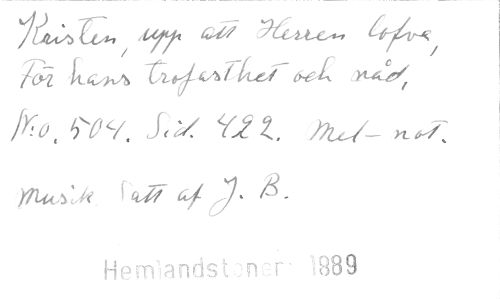 Kristen, upp att Herren lofva,
För hans trofasthet och nåd,
N:o. 504. Sid. 422. Mel-not.
Musik Satt af J. B.
Hemlandstoner 1889